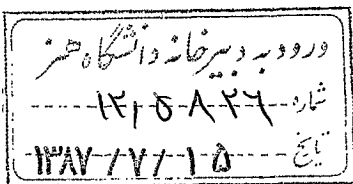 ورود به دبیرخانه دانشگاه هنر
شماره ۱۲٫۵۸۲۶
تاریخ ۱۳۸۷/۷/۱۵